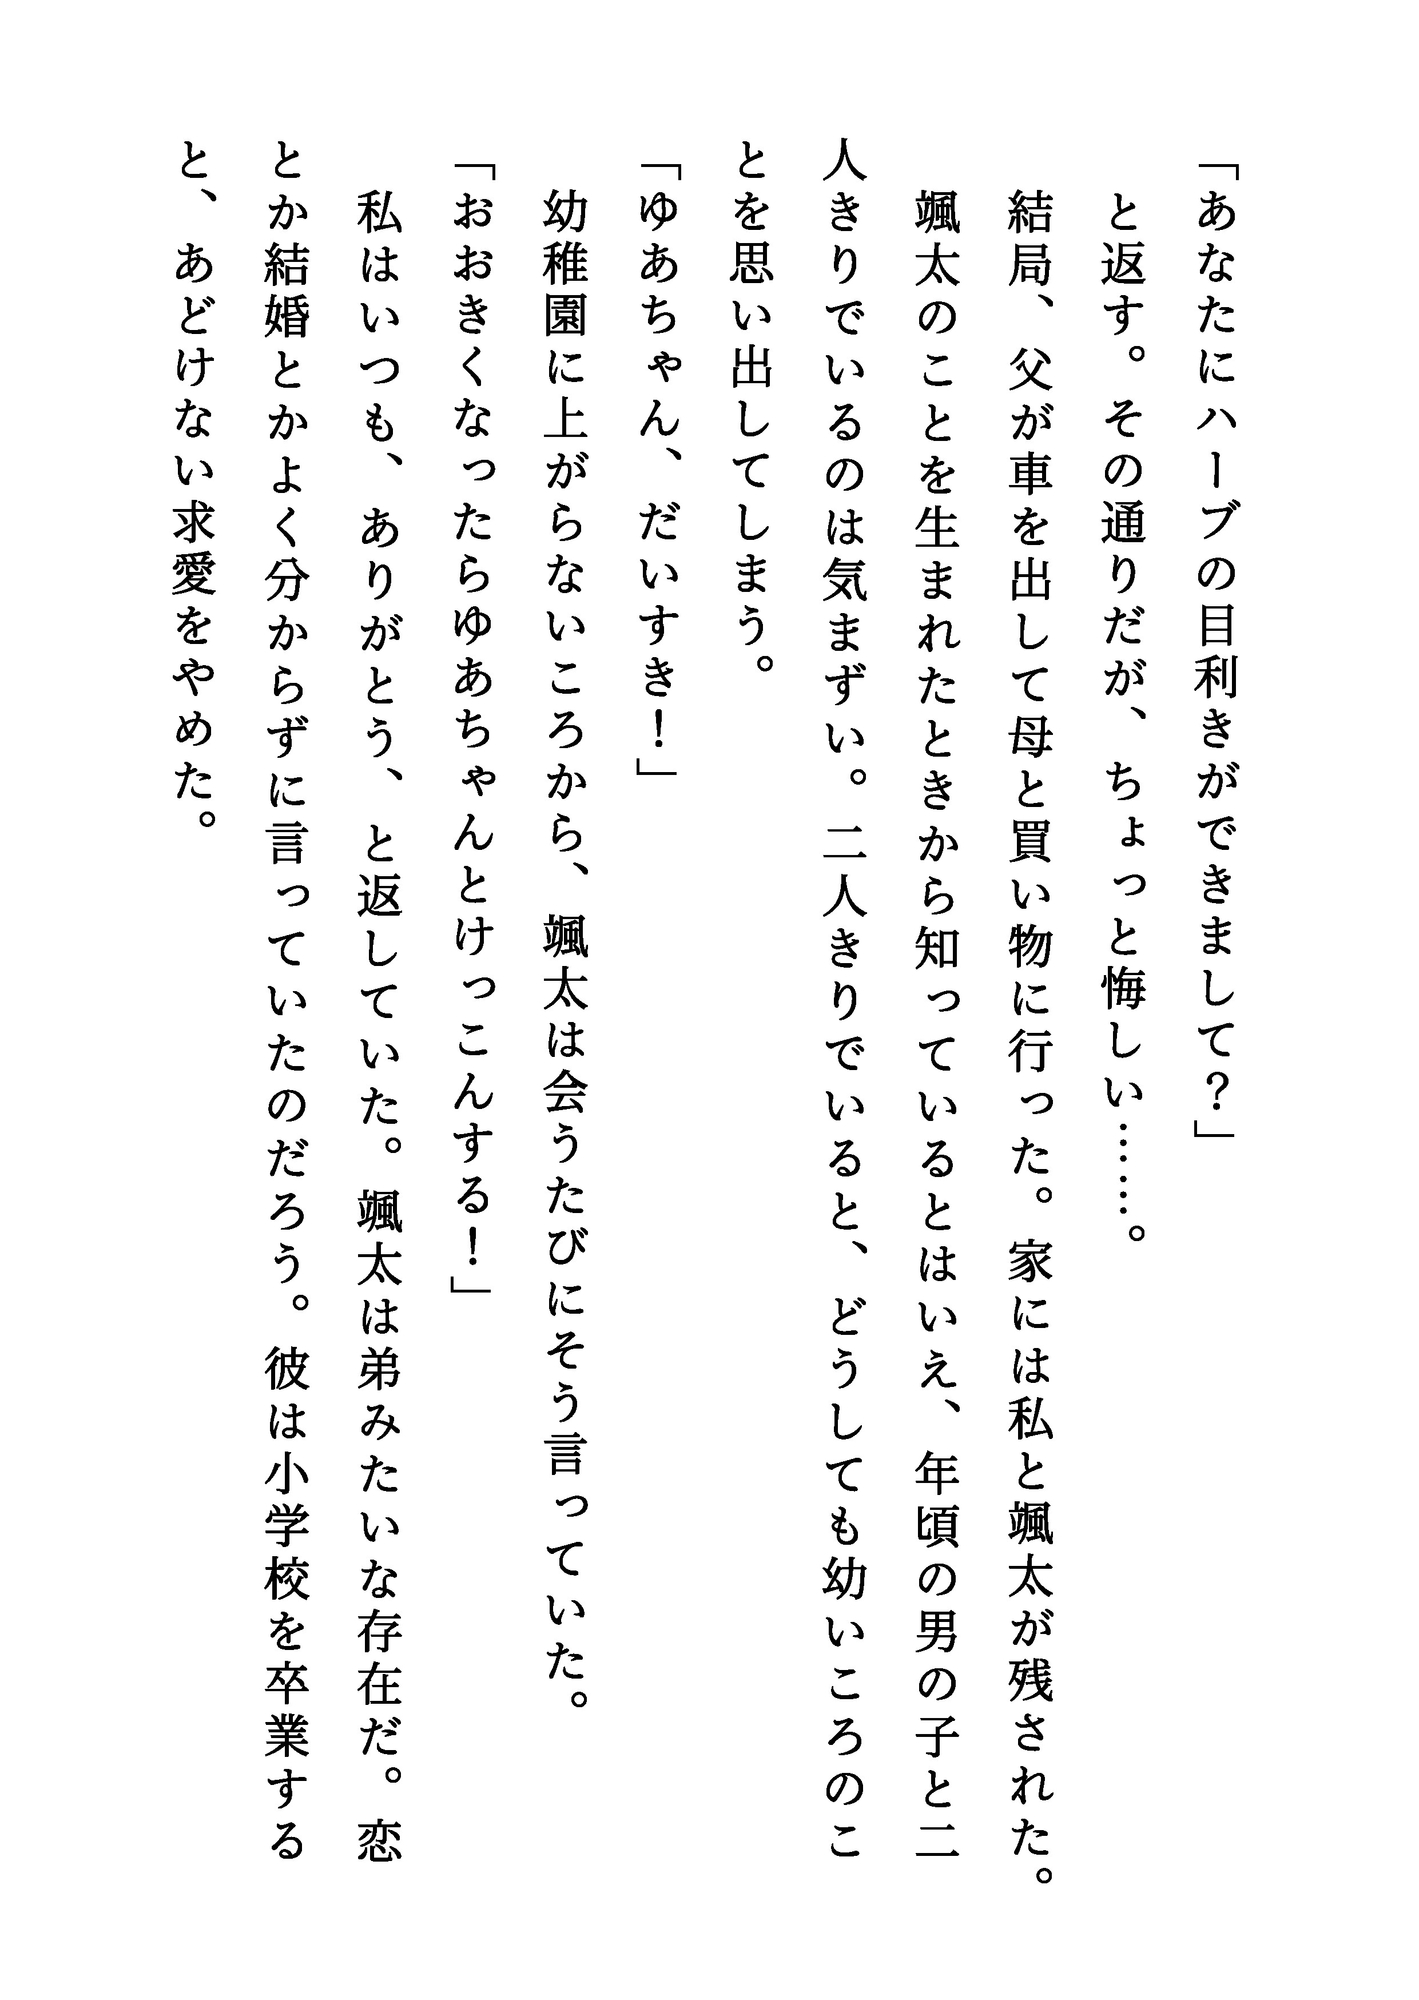 「あなたにハーブの目利きができまして？」
と返す。その通りだが、ちょっと悔しい……。
結局、父が車を出して母と買い物に行った。家には私と颯太が残された。
颯太のことを生まれたときから知っているとはいえ、年頃の男の子と二
人きりでいるのは気まずい。二人きりでいると、どうしても幼いころのこ
とを思い出してしまう。
「ゆあちゃん、だいすき！」
幼稚園に上がらないころから、颯太は会うたびにそう言っていた。
「おおきくなったらゆあちゃんとけっこんする！」
私はいつも、ありがとう、と返していた。颯太は弟みたいな存在だ。恋
とか結婚とかよく分からずに言っていたのだろう。彼は小学校を卒業する
と、あどけない求愛をやめた。